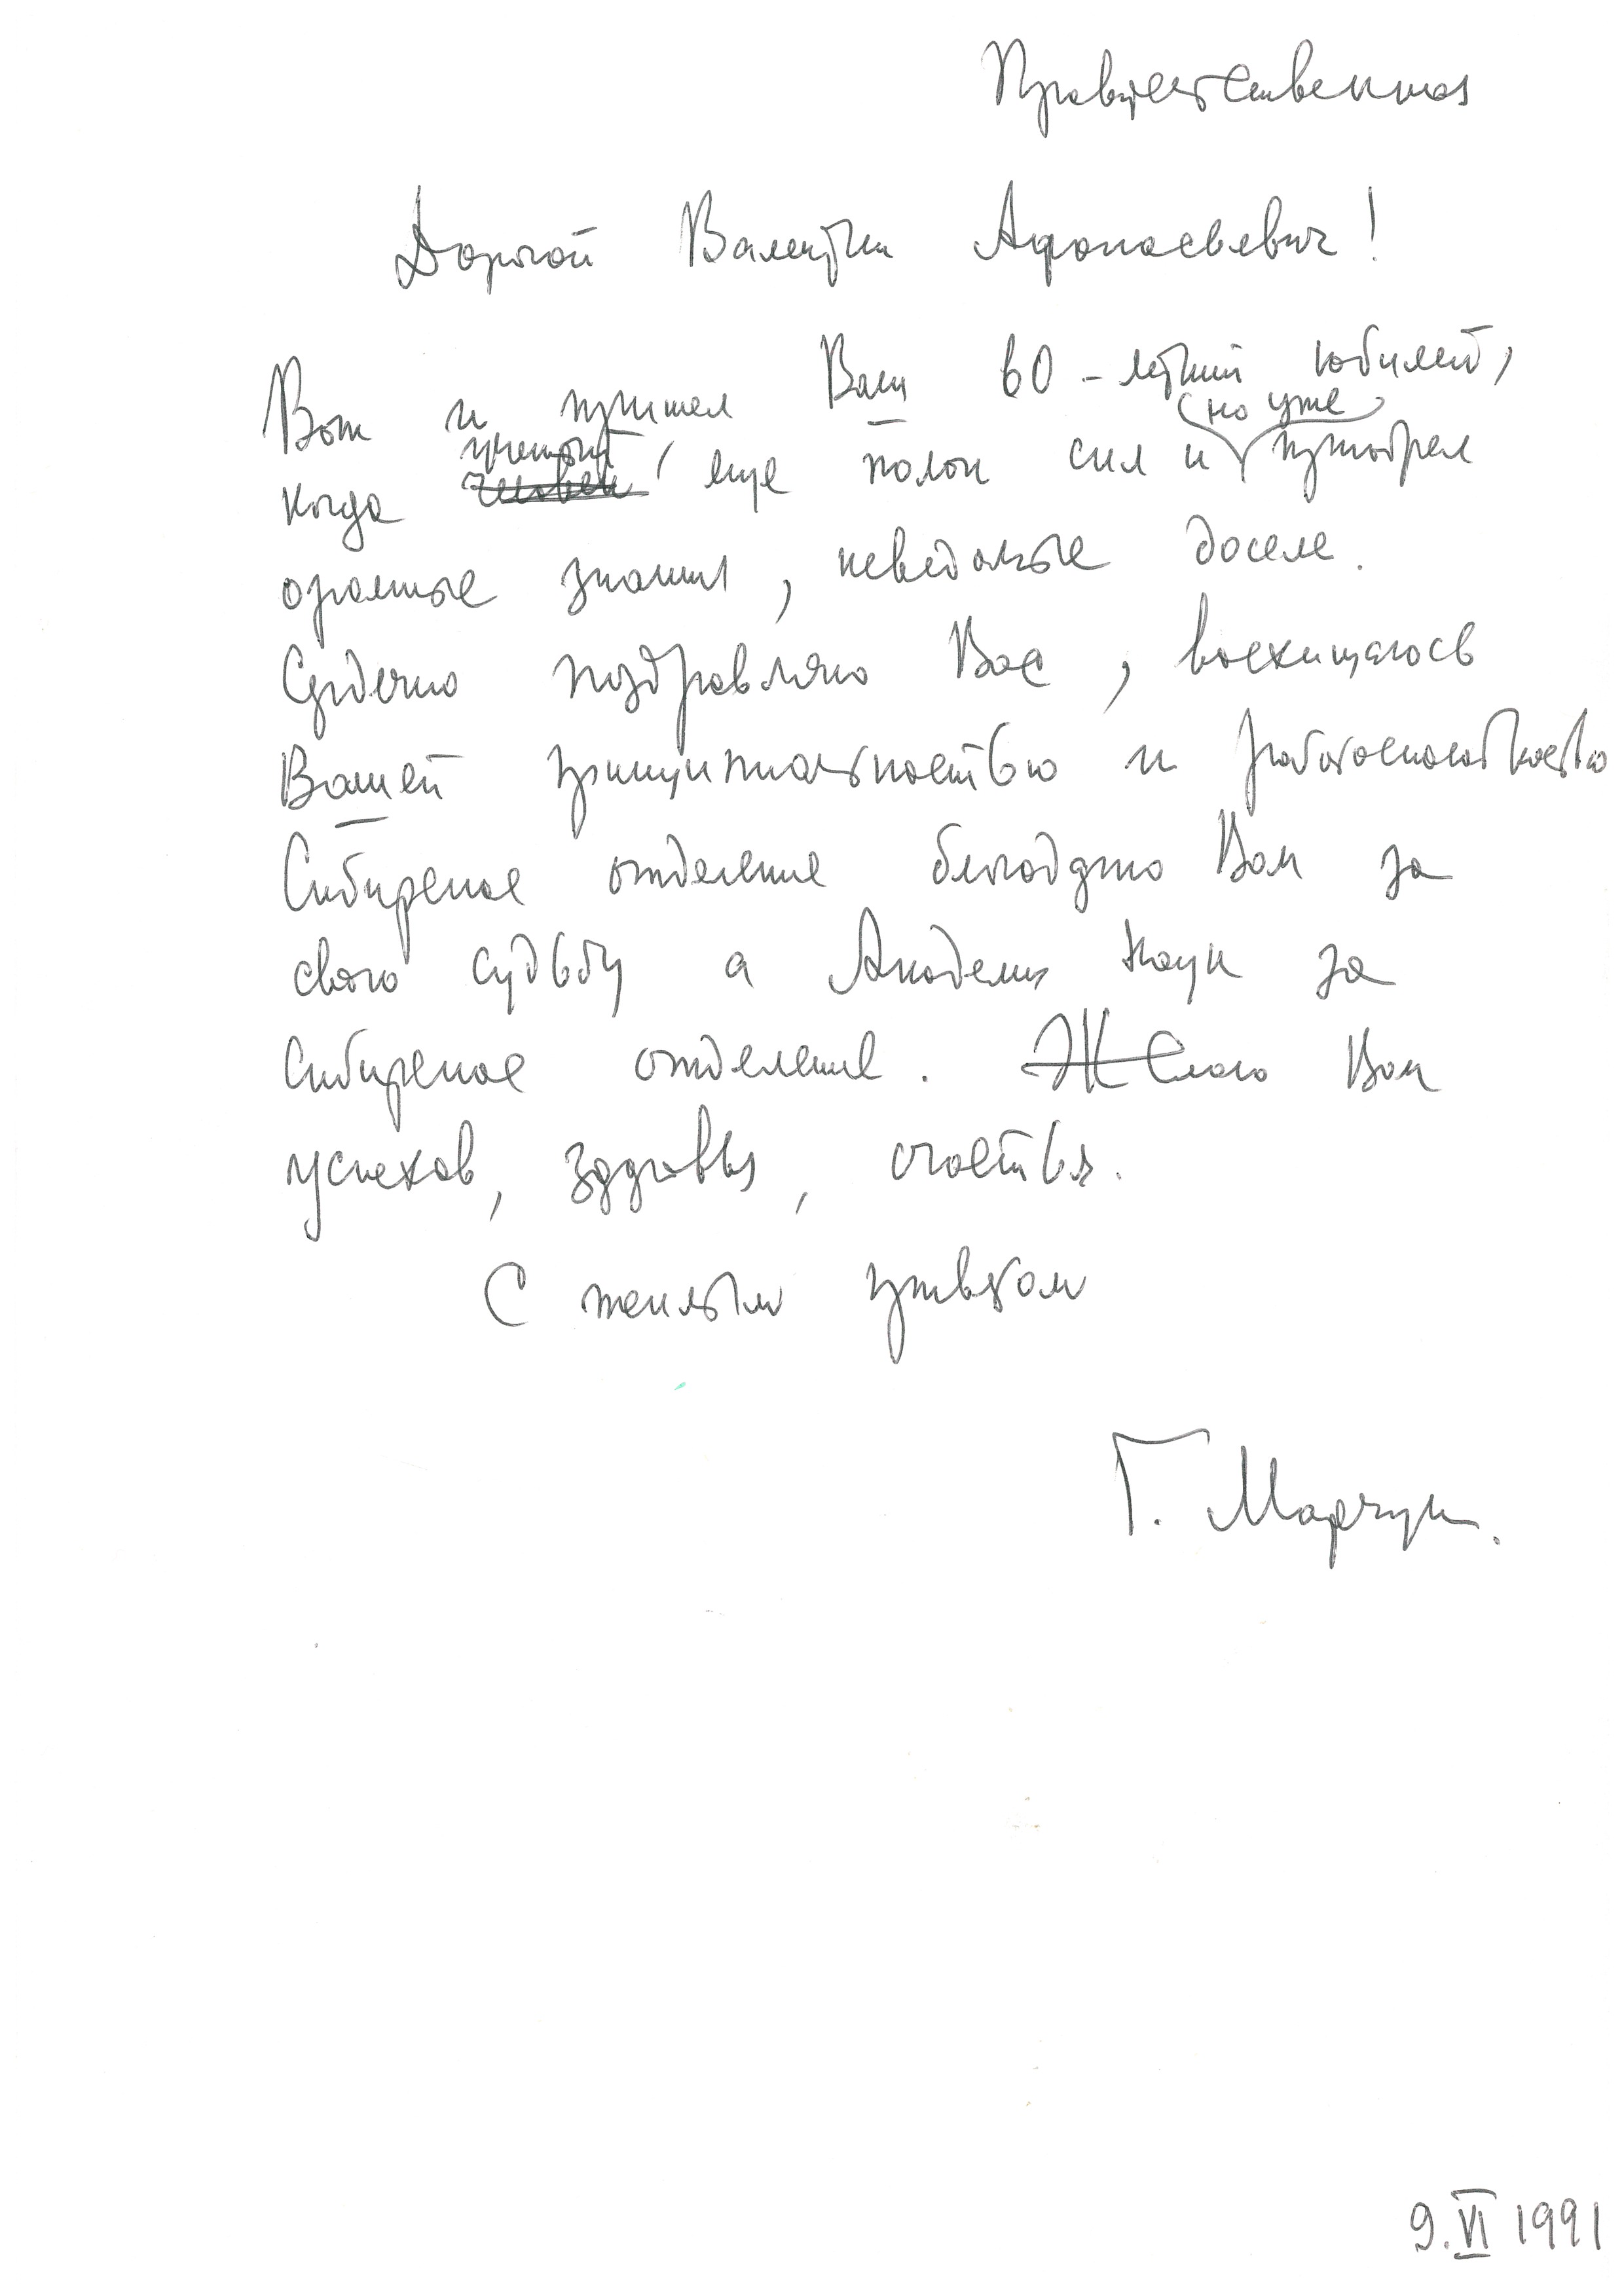 Правительственная
Дорогой Валентин Афанасьевич!
Вот и пришел Ваш 60-летний юбилей,
когда ученый, еще полон сил и (но уже) приобрел
огромные знания, неведомые доселе.
Сердечно поздравляю Вас, восхищаюсь
Вашей принципиальностью и работоспособностью
Сибирское отделение благодарно Вам за
свою судьбу а Академия Наук за
Сибирское отделение. Желаю Вам
успехов, здоровья, счастья.
С теплым приветом
Г. Марчук.
9.VI 1991